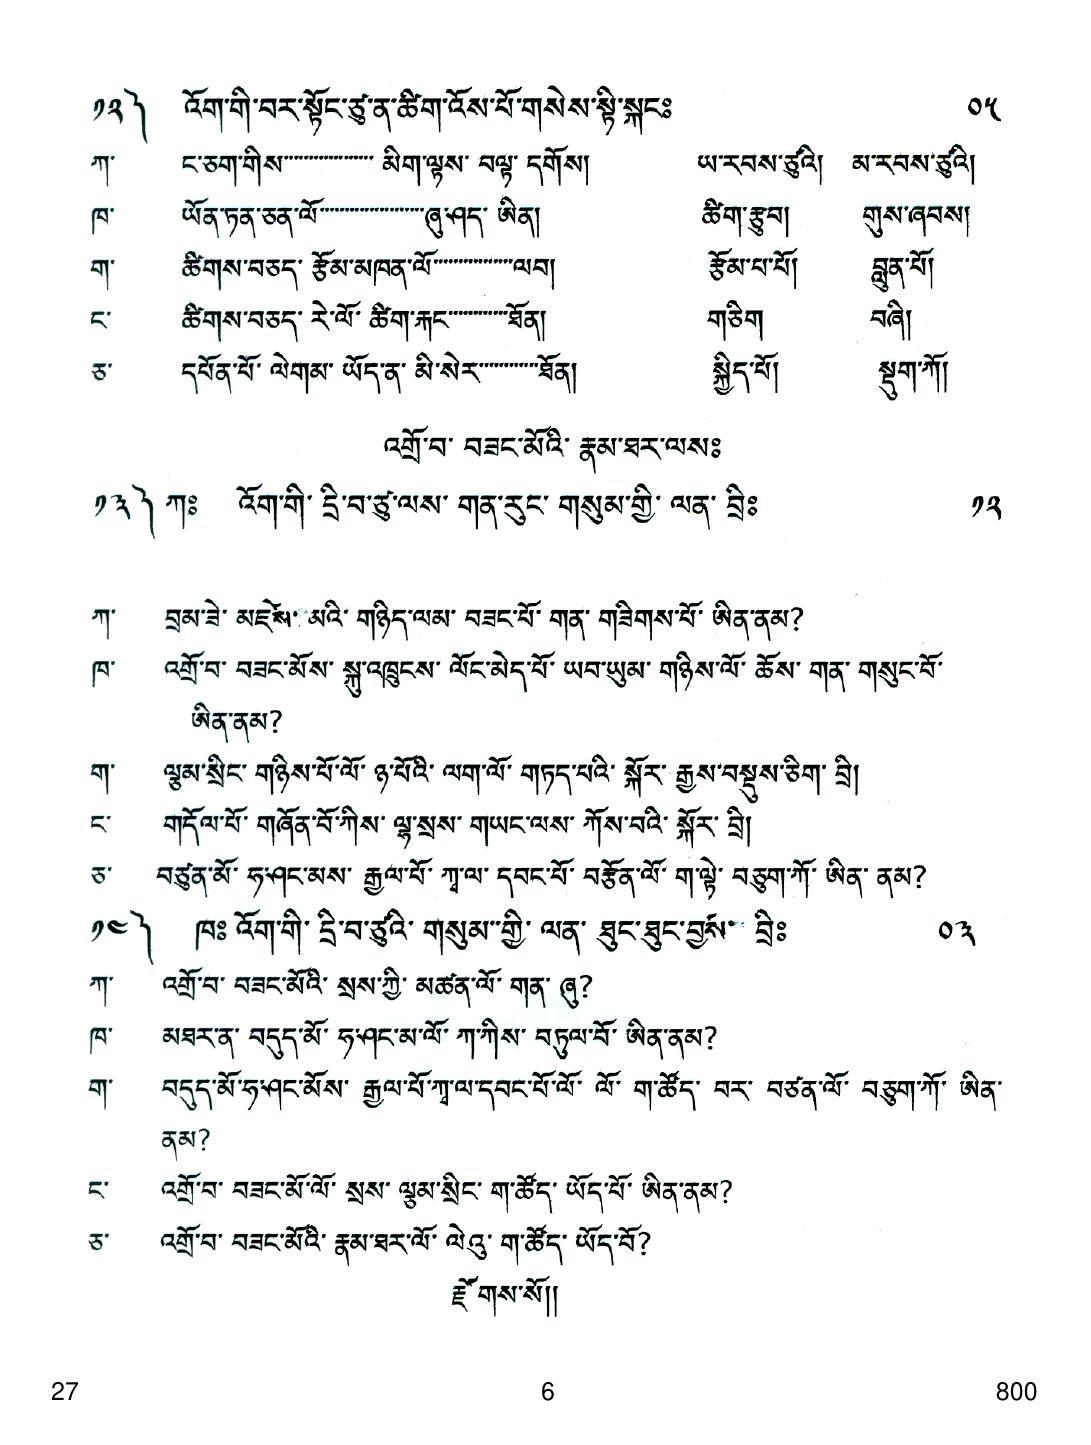 ༡༢༽ འོག་གི་བར་སྟོང་ཙུ་ན་ཚིག་འོས་པོ་གསེས་སྟི་སྐང༔ ༠༥
ཀ་ ང་ཅག་གིས་.................... མིག་ལྟས་ བལྟ་ དགོས། ཡ་རབས་ཙུའི། མ་རབས་ཙུའི།
ཁ་ ཡོན་ཏན་ཅན་ལོ་.......................ཞུ་ཤད་ ཨིན། ཚིག་རྩུབ། གུས་ཞབས།
ག་ ཚིགས་བཅད་ རྩོམ་མཁན་ལོ་.................ལབ། རྩོམ་པ་པོ། བླུན་པོ།
ང་ ཚིགས་བཅད་ རེ་ལོ་ ཚིག་རྐང་.............ཐོན། གཅིག བཞི།
ཅ་ དཔོན་པོ་ ལེགམ་ ཡོད་ན་ མི་སེར་............ཐོན། སྐྱིད་པོ། སྡུག་ཀོ།
འགྲོ་བ་ བཟང་མོའི་ རྣམ་ཐར་ལས༔
༡༣༽ ཀ༔ འོག་གི་ དྲི་བ་ཙུ་ལས་ གན་རུང་ གསུམ་གྱི་ ལན་ བྲི༔ ༡༢
ཀ་ བྲམ་ཟེ་ མཛེས་ མའི་ གཉིད་ལམ་ བཟང་པོ་ གན་ གཟིགས་པོ་ ཨིན་ནམ?
ཁ་ འགྲོ་བ་ བཟང་མོས་ སྐུ་འཁྲུངས་ ལོང་མེད་པོ་ ཡབ་ཡུམ་ གཉིས་ལོ་ ཆོས་ གན་ གསུང་བོ་
ཨིན་ནམ?
ག་ ལྕམ་སྲིང་ གཉིས་པོ་ལོ་ ཉ་པོའི་ ལག་ལོ་ གཏད་པའི་ སྐོར་ རྒྱས་བསྡུས་ཅིག་ བྲི།
ང་ གདོལ་པོ་ གཞོན་བོ་ཀིས་ ལྷ་སྲས་ གཡང་ལས་ ཀོས་བའི་ སྐོར་ བྲི།
ཅ་ བཙུན་མོ་ ཧ་ཤང་མས་ རྒྱལ་པོ་ ཀཱ་ལ་ དབང་པོ་ བཙོན་ལོ་ ག་ལྟེ་ བཙུག་ཀོ་ ཨིན་ ནམ?
༡༤༽ ཁ༔ འོག་གི་ དྲི་བ་ཙུའི་ གསུམ་གྱི་ ལན་ ཐུང་ཐུང་བྱས་ བྲི༔ ༠༣
ཀ་ འགྲོ་བ་ བཟང་མོའི་ སྲས་ཀྱི་ མཚན་ལོ་ གན་ ཞུ?
ཁ་ མཐར་ན་ བདུད་མོ་ ཧ་ཤང་མ་ལོ་ ཀ་ཀིས་ བཏུལ་བོ་ ཨིན་ནམ?
ག་ བདུད་མོ་ཧ་ཤང་མོས་ རྒྱལ་པོ་ཀཱ་ལ་དབང་པོ་ལོ་ ལོ་ ག་ཚོད་ བར་ བཙན་ལོ་ བཙུག་ཀོ་ ཨིན་
ནམ?
ང་ འགྲོ་བ་ བཟང་མོ་ལོ་ སྲས་ ལྕམ་སྲིང་ ག་ཚོད་ ཡོད་པོ་ ཨིན་ནམ?
ཅ་ འགྲོ་བ་ བཟང་མོའི་ རྣམ་ཐར་ལོ་ ལེའུ་ ག་ཚོད་ ཡོད་བོ?
རྫོགས་སོ།།
27 6 800